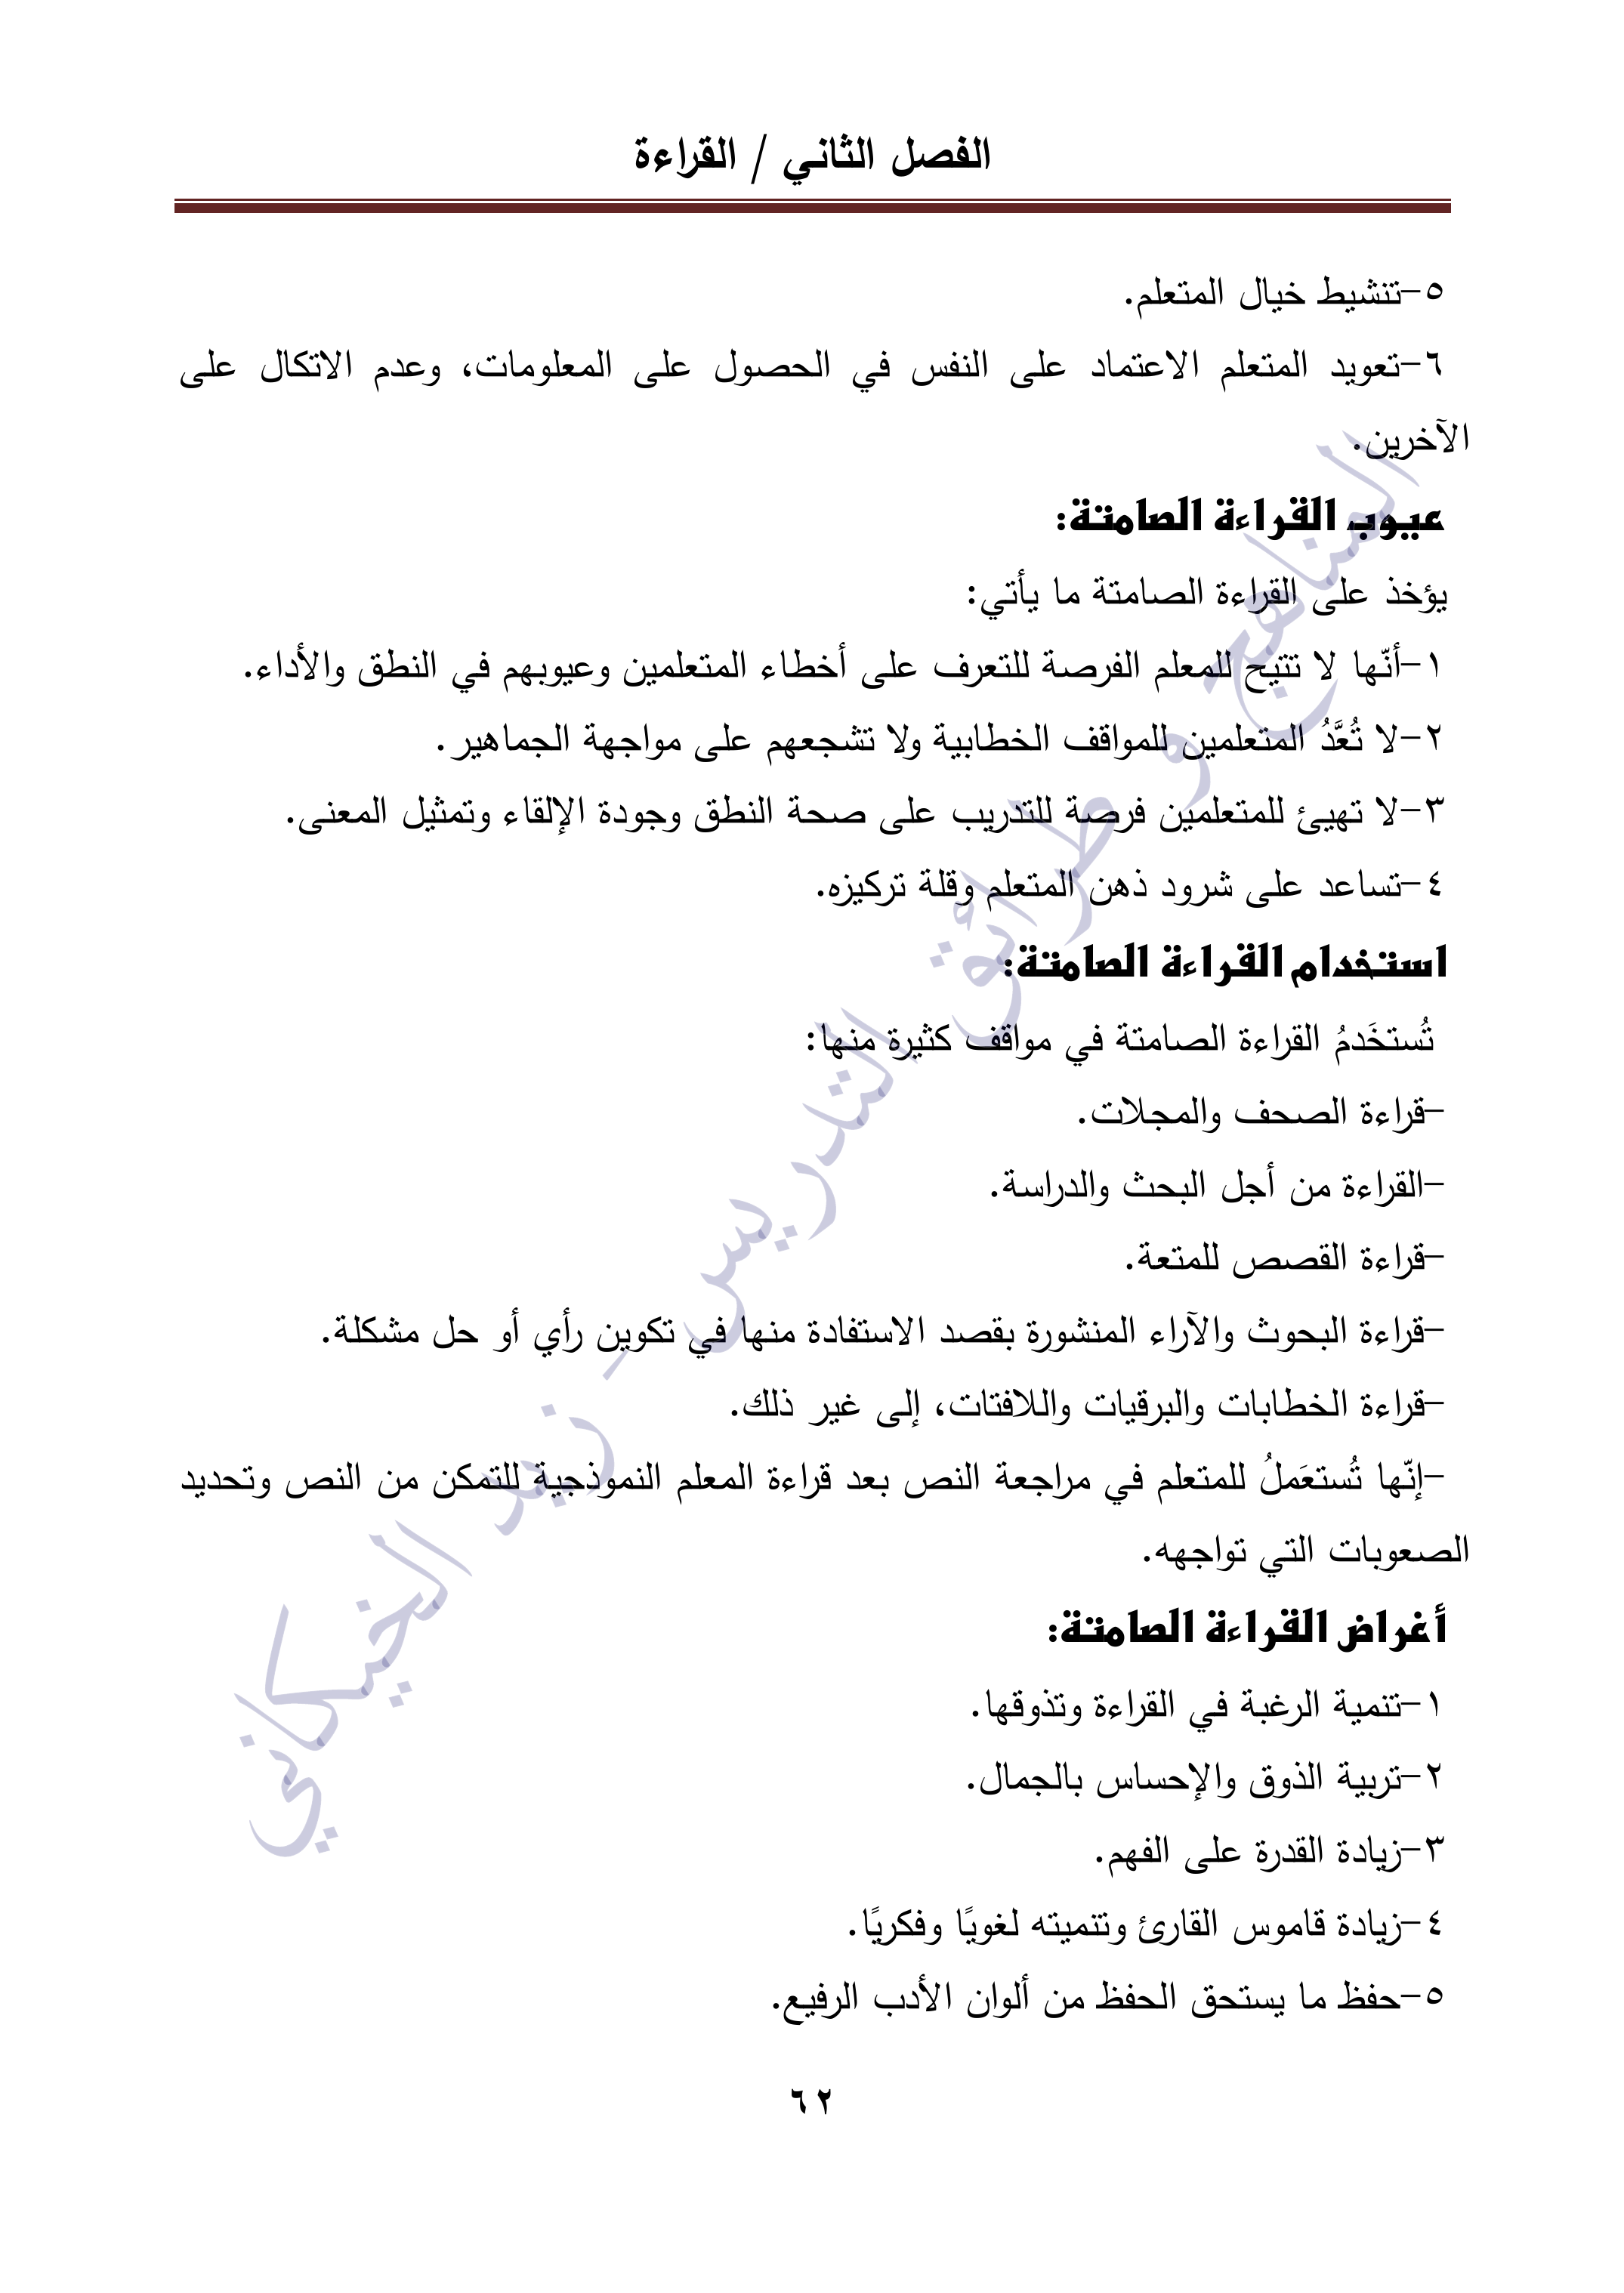 الفصل الثاني / القراءة
٥-تنشيط خيال المتعلم.
٦-تعويد المتعلم الاعتماد على النفس في الحصول على المعلومات، وعدم الاتكال على
الآخرين.
عيوب القراءة الصامتة:
يؤخذ على القراءة الصامتة ما يأتي:
١-أنّها لا تتيح للمعلم الفرصة للتعرف على أخطاء المتعلمين وعيوبهم في النطق والأداء.
٢-لا تُعَّدُ المتعلمين للمواقف الخطابية ولا تشجعهم على مواجهة الجماهير.
٣-لا تهيئ للمتعلمين فرصة للتدريب على صحة النطق وجودة الإلقاء وتمثيل المعنى.
٤-تساعد على شرود ذهن المتعلم وقلة تركيزه.
استخدام القراءة الصامتة:
تُستخَدمُ القراءة الصامتة في مواقف كثيرة منها:
-قراءة الصحف والمجلات.
-القراءة من أجل البحث والدراسة.
-قراءة القصص للمتعة.
-قراءة البحوث والآراء المنشورة بقصد الاستفادة منها في تكوين رأي أو حل مشكلة.
-قراءة الخطابات والبرقيات واللافتات، إلى غير ذلك.
-إنّها تُستعَملُ للمتعلم في مراجعة النص بعد قراءة المعلم النموذجية للتمكن من النص وتحديد
الصعوبات التي تواجهه.
أغراض القراءة الصامتة:
١-تنمية الرغبة في القراءة وتذوقها.
٢-تربية الذوق والإحساس بالجمال.
٣-زيادة القدرة على الفهم.
٤-زيادة قاموس القارئ وتنميته لغويًا وفكريًا.
٥-حفظ ما يستحق الحفظ من ألوان الأدب الرفيع.
٦٢
المناهج و طرائق التدريس - زيد الخيكاني